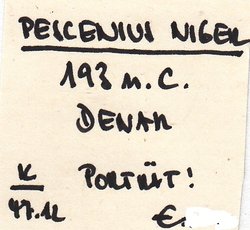 PESCENIUS NIGER
193 n. C.
DENAR
PORTRÄT!
K
47.12
€.